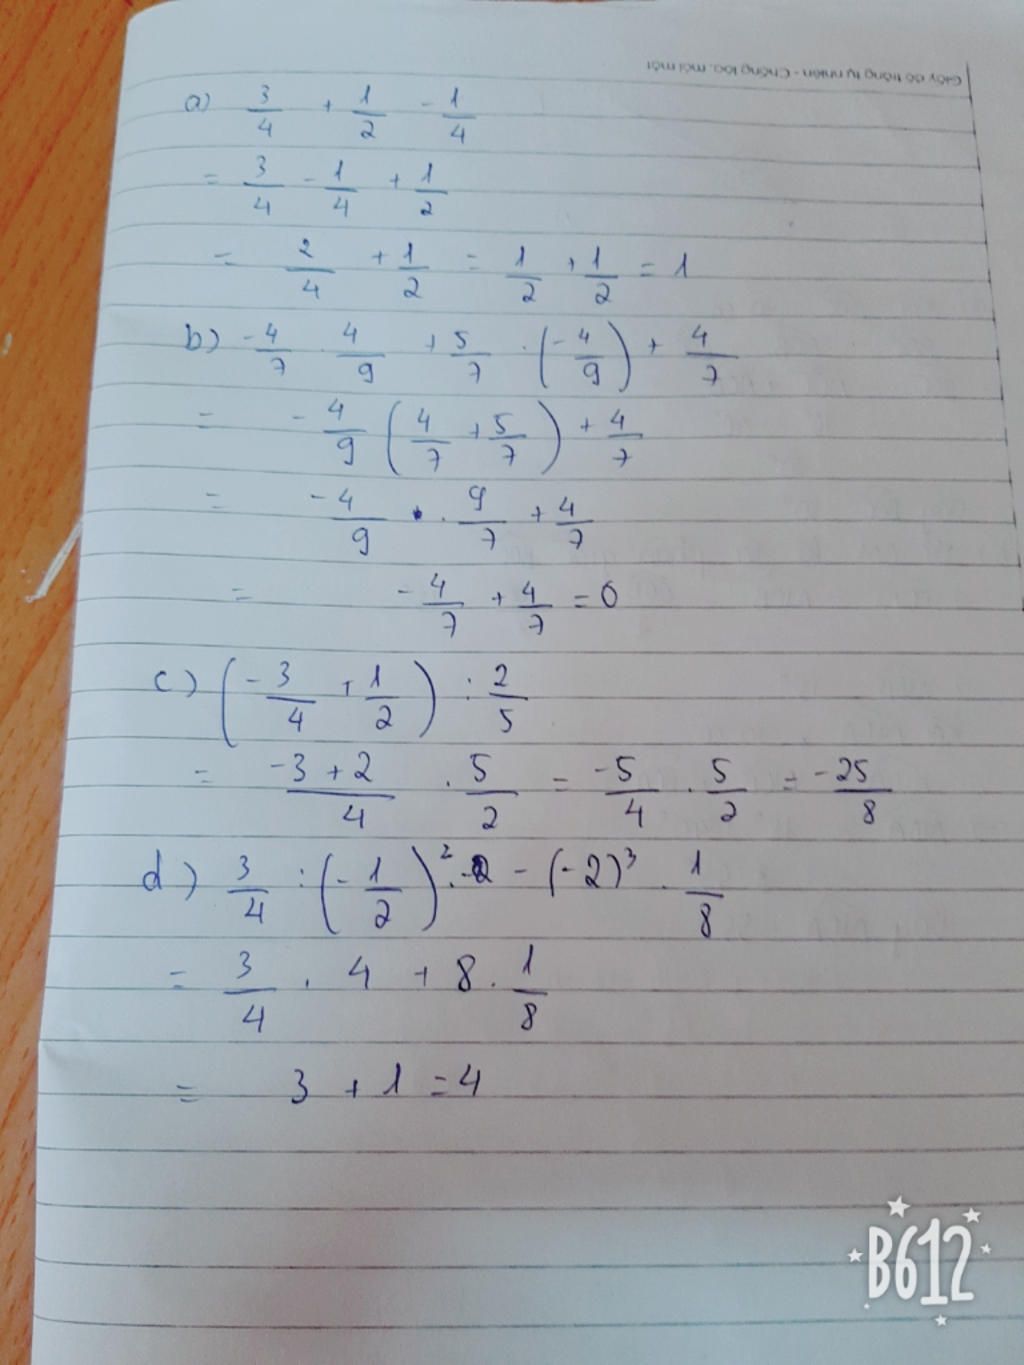 Giấy độ trắng tự nhiên - Chống lóa, mỏi mắt
a) 3/4 + 1/2 - 1/4
= 3/4 - 1/4 + 1/2
= 2/4 + 1/2 = 1/2 + 1/2 = 1
b) -4/7 . 4/9 + 5/7 . (-4/9) + 4/7
= -4/9 (4/7 + 5/7) + 4/7
= -4/9 . 9/7 + 4/7
= -4/7 + 4/7 = 0
c) (-3/4 + 1/2) : 2/5
= -3 + 2/4 . 5/2 = -5/4 . 5/2 = -25/8
d) 3/4 : (-1/2)² - (-2)³ . 1/8
= 3/4 . 4 + 8 . 1/8
= 3 + 1 = 4
B612